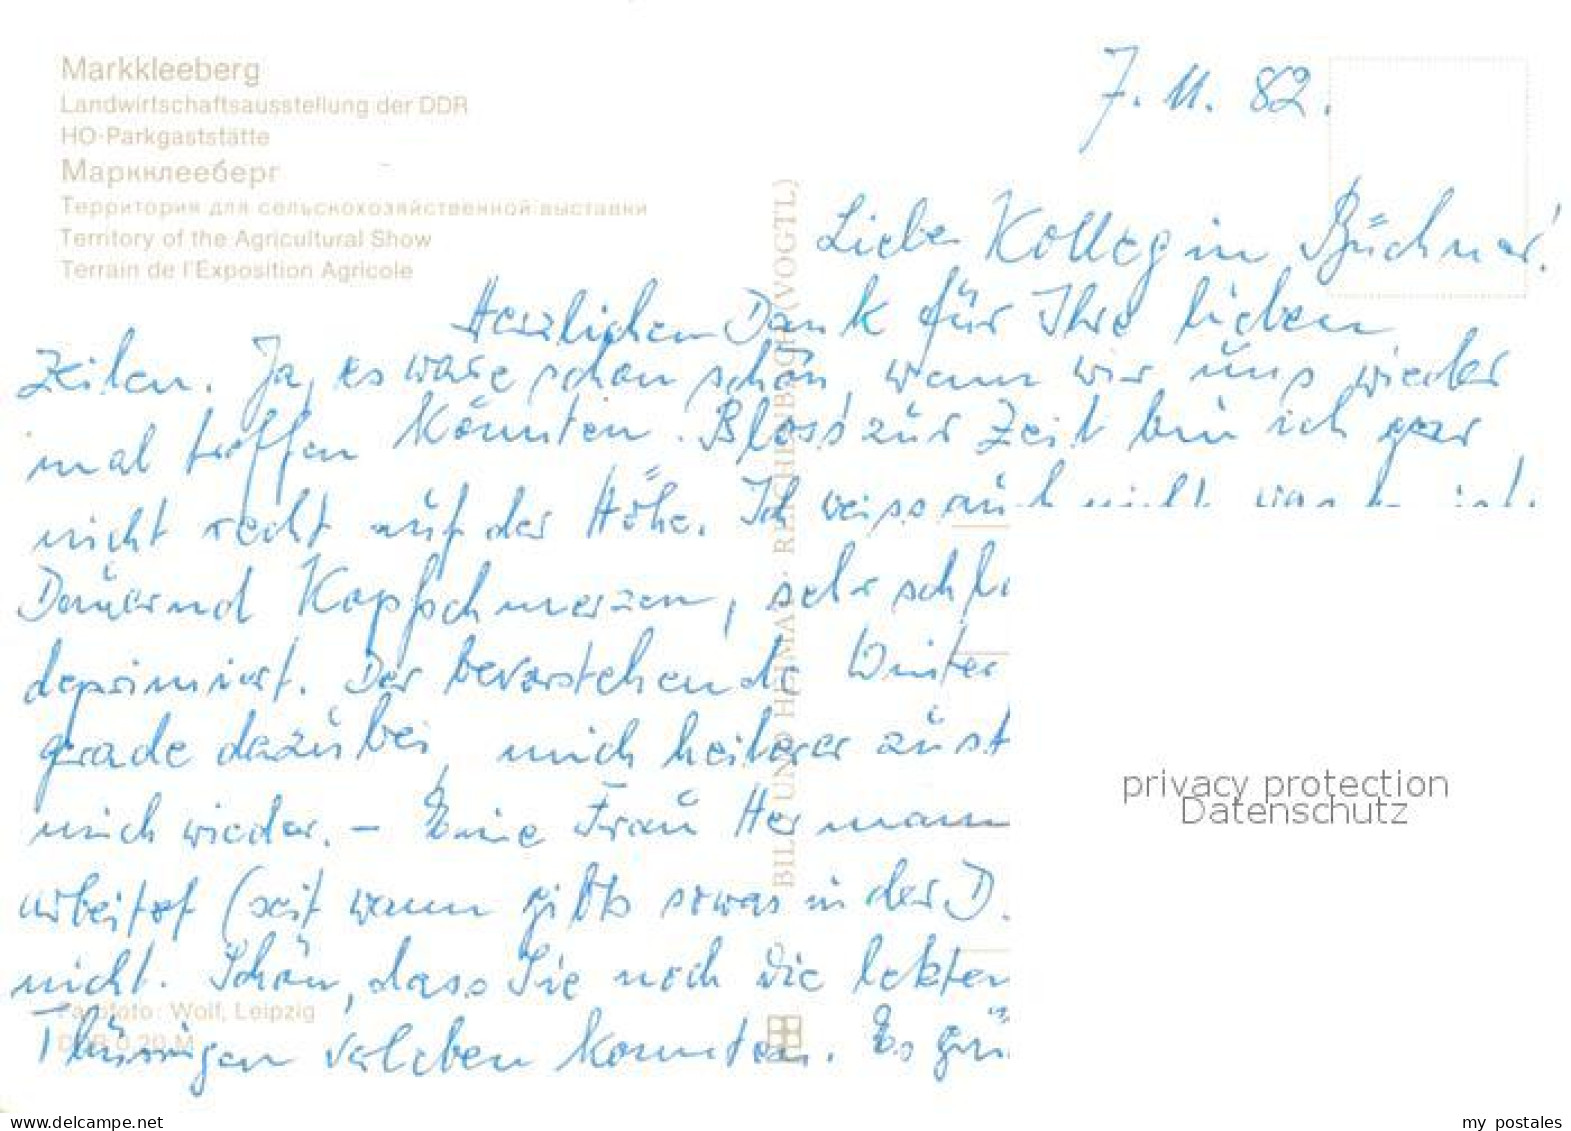 Markkleeberg
Landwirtschaftsausstellung der DDR
HO-Parkgaststätte
Маркклееберг
Территория для сельскохозяйственной выставки
Territory of the Agricultural Show
Terrain de l'Exposition Agricole
7. 11. 82.
Liebe Kollegin Büchner!
Herzlichen Dank für Ihre lieben
Zeilen. Ja, es wäre schon schön, wenn wir uns wieder
mal treffen könnten. Bloss zur Zeit bin ich gar
nicht recht auf der Höhe. Ich weiss auch nicht was
Dauernd Kopfschmerzen, sehr
deprimiert. Der bevorstehende Winter
grade dazu bei, mich heiterer
mich wieder. – Eine Frau Hermann
arbeitet (seit wann gibts sowas in der D
nicht. Schön, dass Sie noch die letzten
Thüringen verleben konnten. Es
BILD UND HEIMAT · REICHENBACH (VOGTL)
Farbfoto: Wolf, Leipzig
DDR 0,20 M
privacy protection
Datenschutz
www.delcampe.net
my_postales